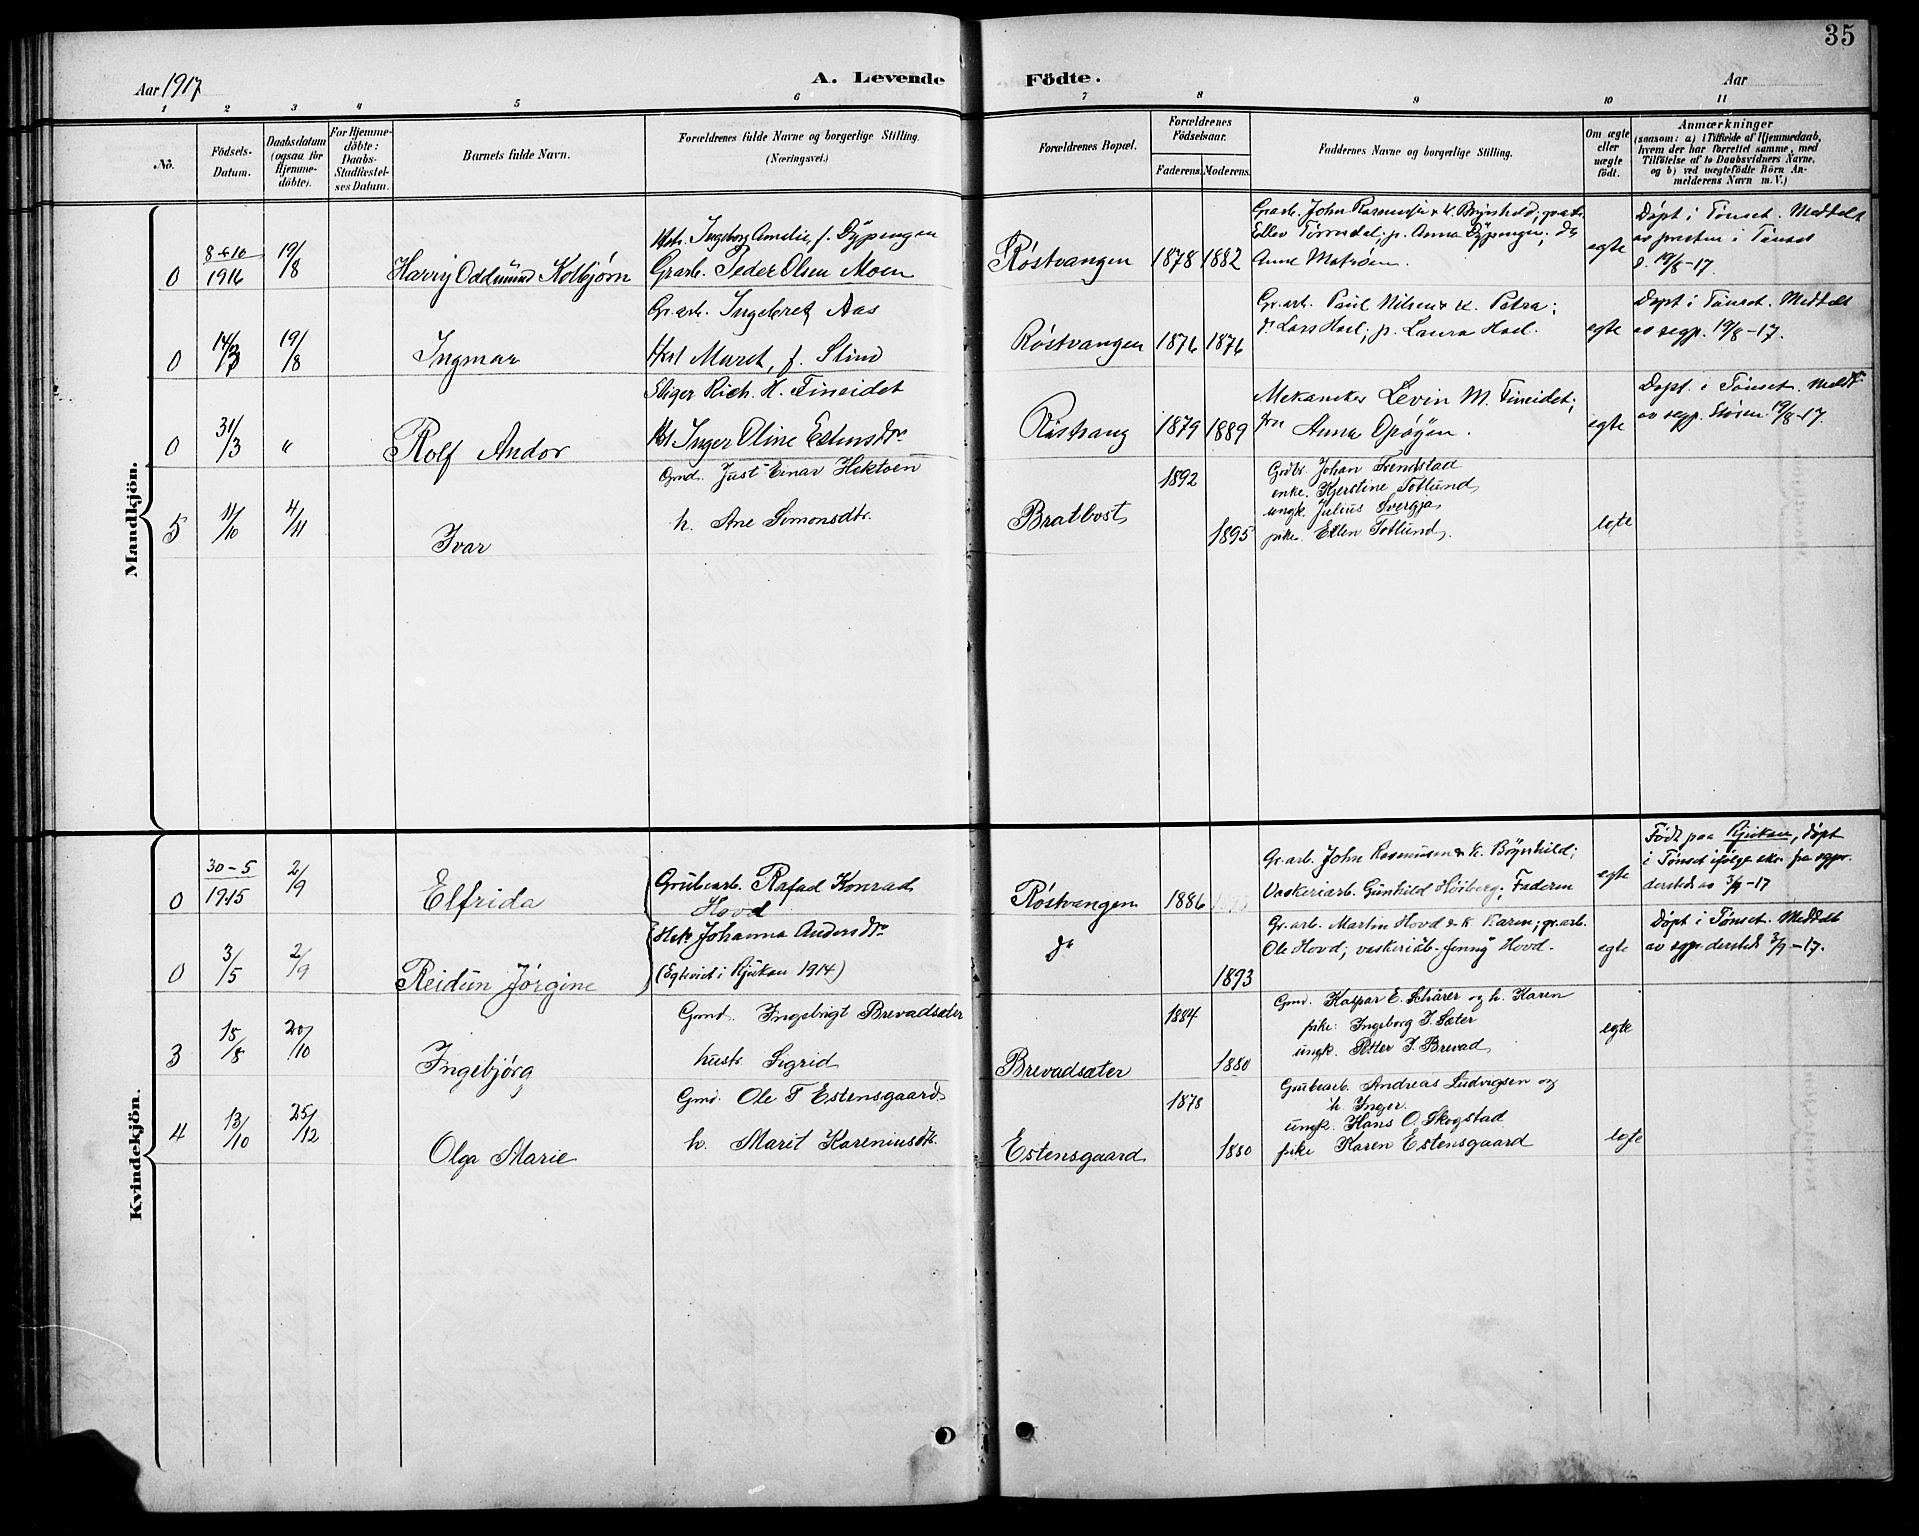 35
Aar 1917
A. Levende Födte.
Aar
1 2 3 4 5 6 7 8 9 10 11
No.
Födsels-Datum.
Daabsdatum (ogsaa for Hjemme-döbte).
For Hjemme-döbte: Daabs-Stadfæstel-ses Datum.
Barnets fulde Navn.
Forældrenes fulde Navne og borgerlige Stilling. (Næringsvei.)
Forældrenes Bopæl.
Forældrenes Födselsaar.
Faderens. Moderens.
Faddernes Navne og borgerlige Stilling.
Om ægte eller uægte födt.
Anmærkninger
(saasom: a) i Tilfælde af Hjemmedaab,
hvem der har forrettet samme, med
Tilföielse af to Daabsvidners Navne,
og b) ved uægtefödte Börn An-
melderens Navn m. V.)
Mandkjön.
0 8/10 1916 19/8 Harry Oddmund Kolbjørn
Hstr. Ingeborg Amelie, f. Dypingen
Grarb. Peder Olsen Moen
Røstvangen 1878 1882
Grarb. John Rasmussen & k. Brynhild; grarb.
Ellev Tørresdal; p. Anna Dypingen; do
Anne Motrøen.
egte
Døpt i Tønset. Meddelt
av presten i Tønset
d. 19/8-17.
0 14/3 19/8 Ingmar
Gr.arb. Ingebret Aas
Hst Maret, f. Slind
Røstvangen 1876 1876
Gr.arb. Paul Nilsen & k. Petra;
do Lars Hoel; p. Laura Hoel.
egte
Døpt i Tønset. Meddelt
av sogp. 19/8-17.
0 31/3 " Rolf Andor
Stiger Rich. H. Fineidet
Hst Inger Oline Estensdtr
Røstvang 1879 1889
Mekaniker Levin M. Fineidet;
fru Anna Oprøyen.
egte
Døpt. i Tønset. Meddt.
av sogp. Støren. 19/8-17.
5 11/10 4/11 Ivar
Gmd. Just Einar Hektoen
h. Ane Simonsdtr.
Bratbost 1892 1895
Grdbr. Johan Trondstad
enke. Kjerstine Totlund
ungk. Julius Svergja
pike. Ellen Totlund
egte
Kvindekjön.
0 30-5 1915 2/9 Elfrida
Grubearb. Rafad Konrad
Hovd
Røstvangen 1886 1893
Gr.arb. John Rasmussen & k. Brynhild;
Vaskeriarb. Gunhild Høiberg; Faderen
egte
Født paa Rjukan, døpt
i Tønset ifølge skr. fra sogpr.
dersteds av 3/9-17
0 3/5 2/9 Reidun Jørgine
Hstr Johanna Andersdtr
(Egteviet i Rjukan 1914)
do 1893
Gr.arb. Martin Hovd & k Karen; gr.arb.
Ole Hovd; vaskeriarb. Jenny Hovd.
egte
Døpt i Tønset. Meddelt
av sogpr dersteds 3/9-17.
3 15/8 20/10 Ingebjørg
Gmd. Ingebrigt Brevadsæter
hustr. Sigrid
Brevadsæter 1884 1880
Gmd. Kaspar E. Schärer og h. Karen
pike: Ingeborg J. Sæter
ungk. Petter J. Brevad
egte
4 13/10 25/12 Olga Marie
Gmd. Ole T Estensgaard
h. Marit Kareniusdtr.
Estensgaard 1878 1880
Grubearb. Andreas Ludvigsen og
h. Inger.
ungk. Hans O. Skogstad
pike Karen Estensgaard
egte